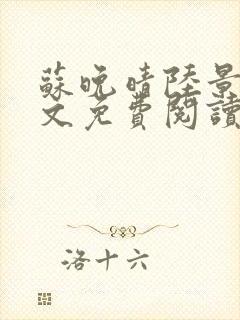 蘇晚晴陸景
文免費閱讀
洛十六